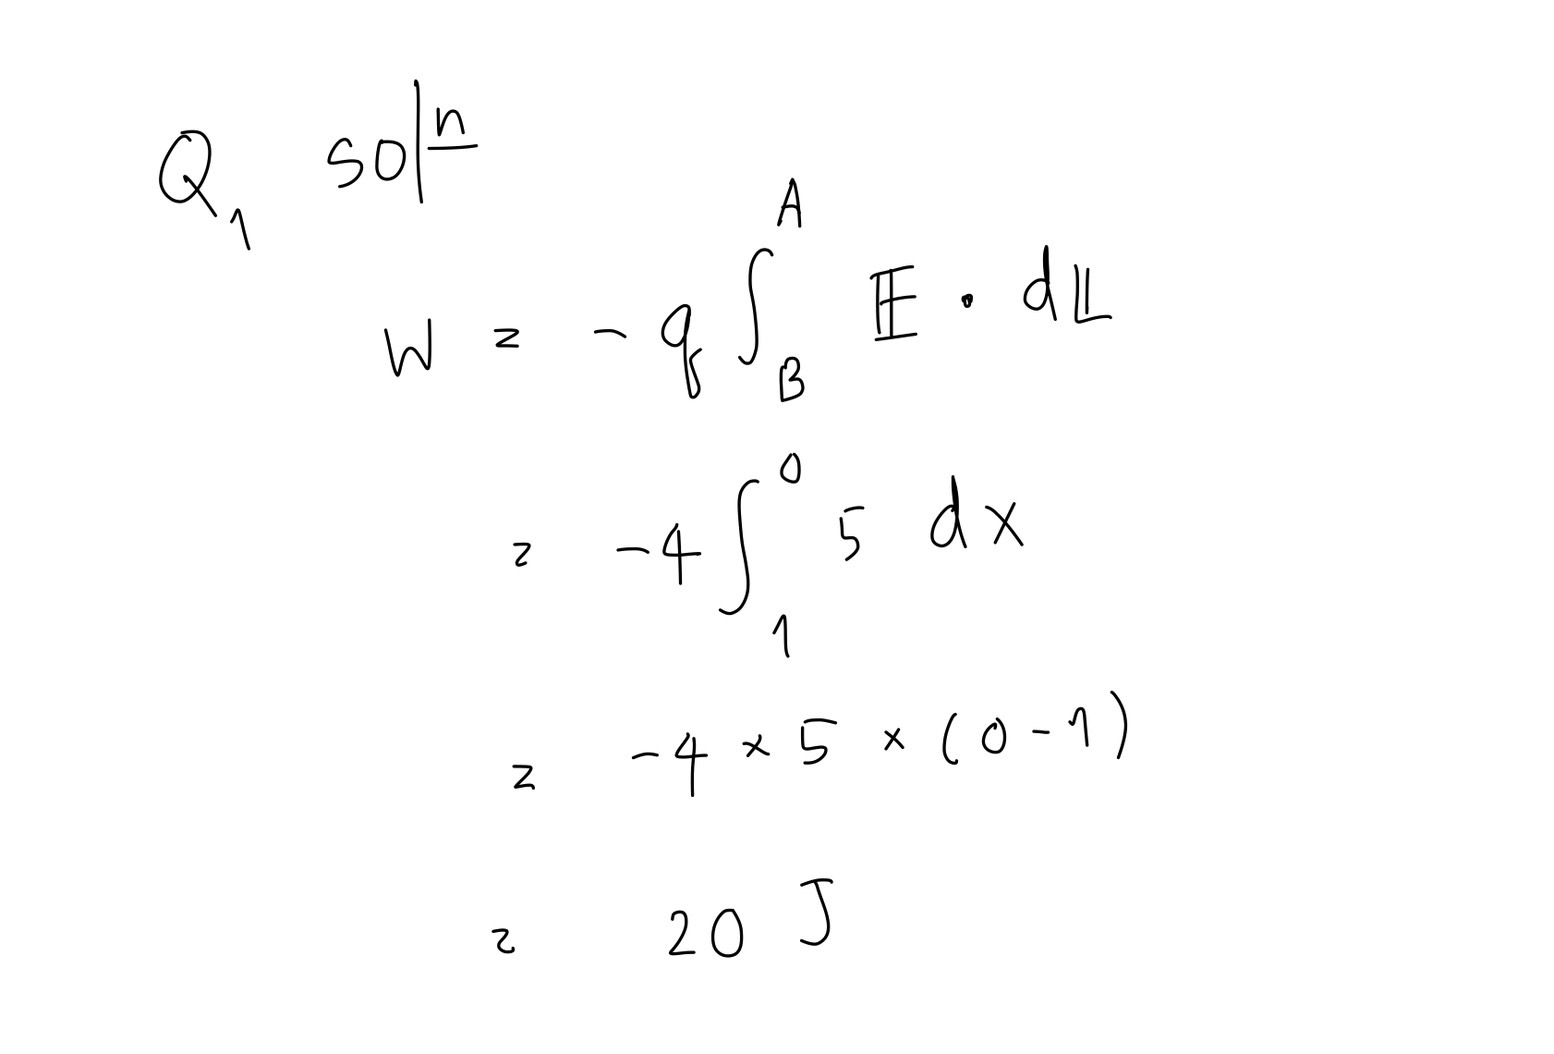 Q₁ solⁿ
W = -q ∫_B^A 𝔼 · d𝕃
= -4 ∫_1^0 5 dx
= -4 × 5 × (0 - 1)
= 20 J